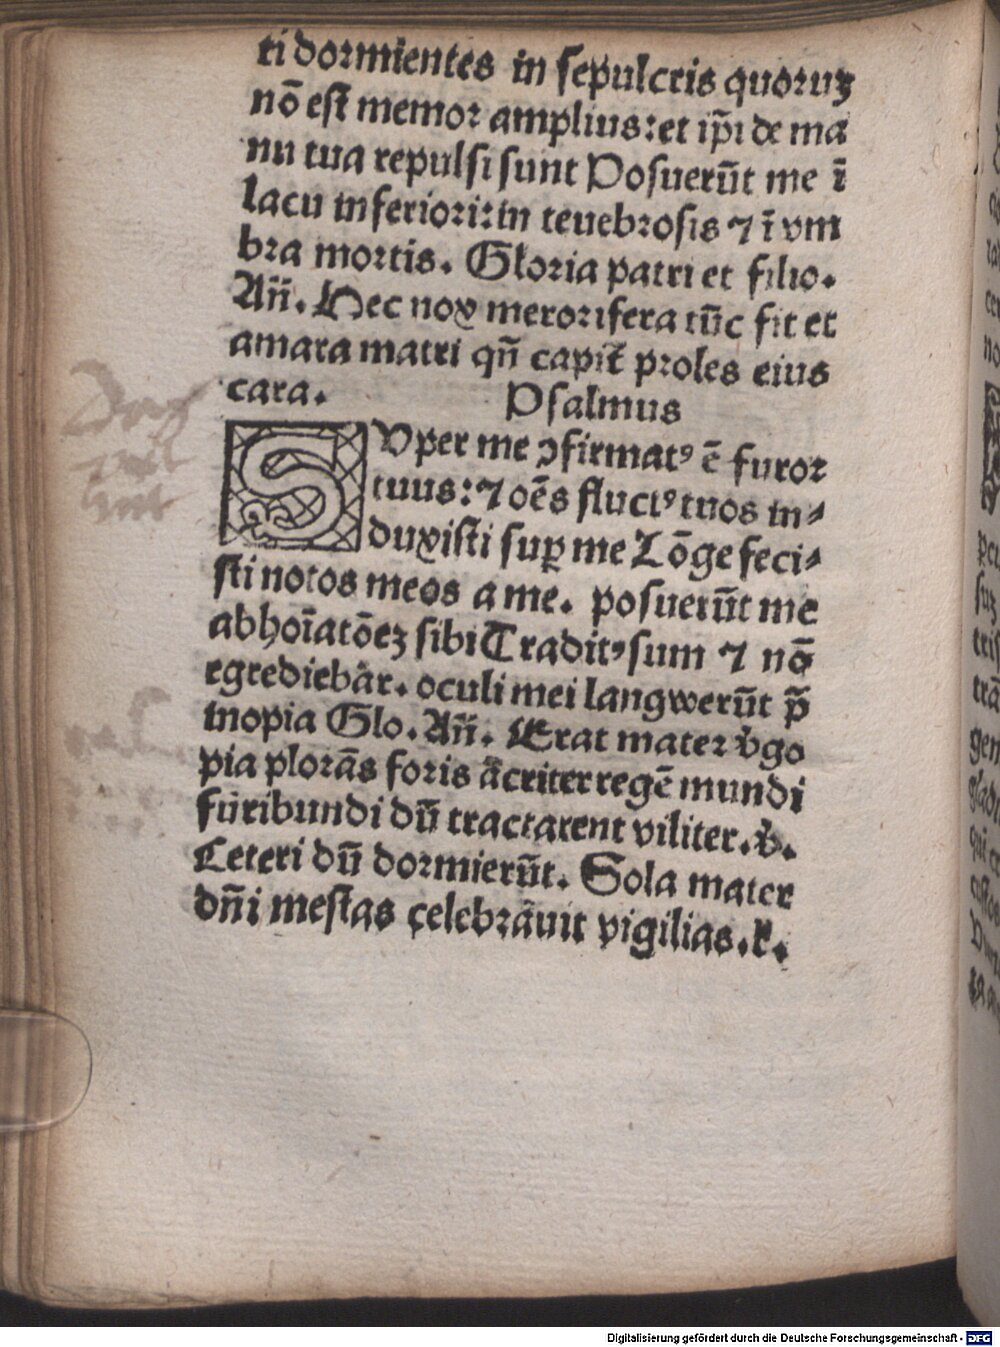 ti dormientes in sepulcris quoruꝫ
nō est memor amplius: et ip̄i de ma
nu tua repulsi sunt Posuerūt me ī
lacu inferiori: in teuebrosis ⁊ ī vm
bra mortis. Gloria patri et filio.
Añ. Hec nox merorifera tūc fit et
amara matri qñ capit̄ proles eius
cara. Psalmus
SVper me ↄfirmatꝰ ē furor
tuus: ⁊ oēs fluctꝰ tuos in⸗
duxisti suꝑ me Lōge feci⸗
sti notos meos a me. posuerūt me
abhoīatōeꝫ sibi Traditꝰ sum ⁊ nō
egrediebār. oculi mei langwerūt p̄
inopia Glo. Añ. Erat mater v̓go
pia plorās foris ācriter regē mundi
furibundi dū tractarent viliter. v̓.
Ceteri dū dormierūt. Sola mater
dñi mestas celebrāuit vigilias. r̓.
Digitalisierung gefördert durch die Deutsche Forschungsgemeinschaft - DFG